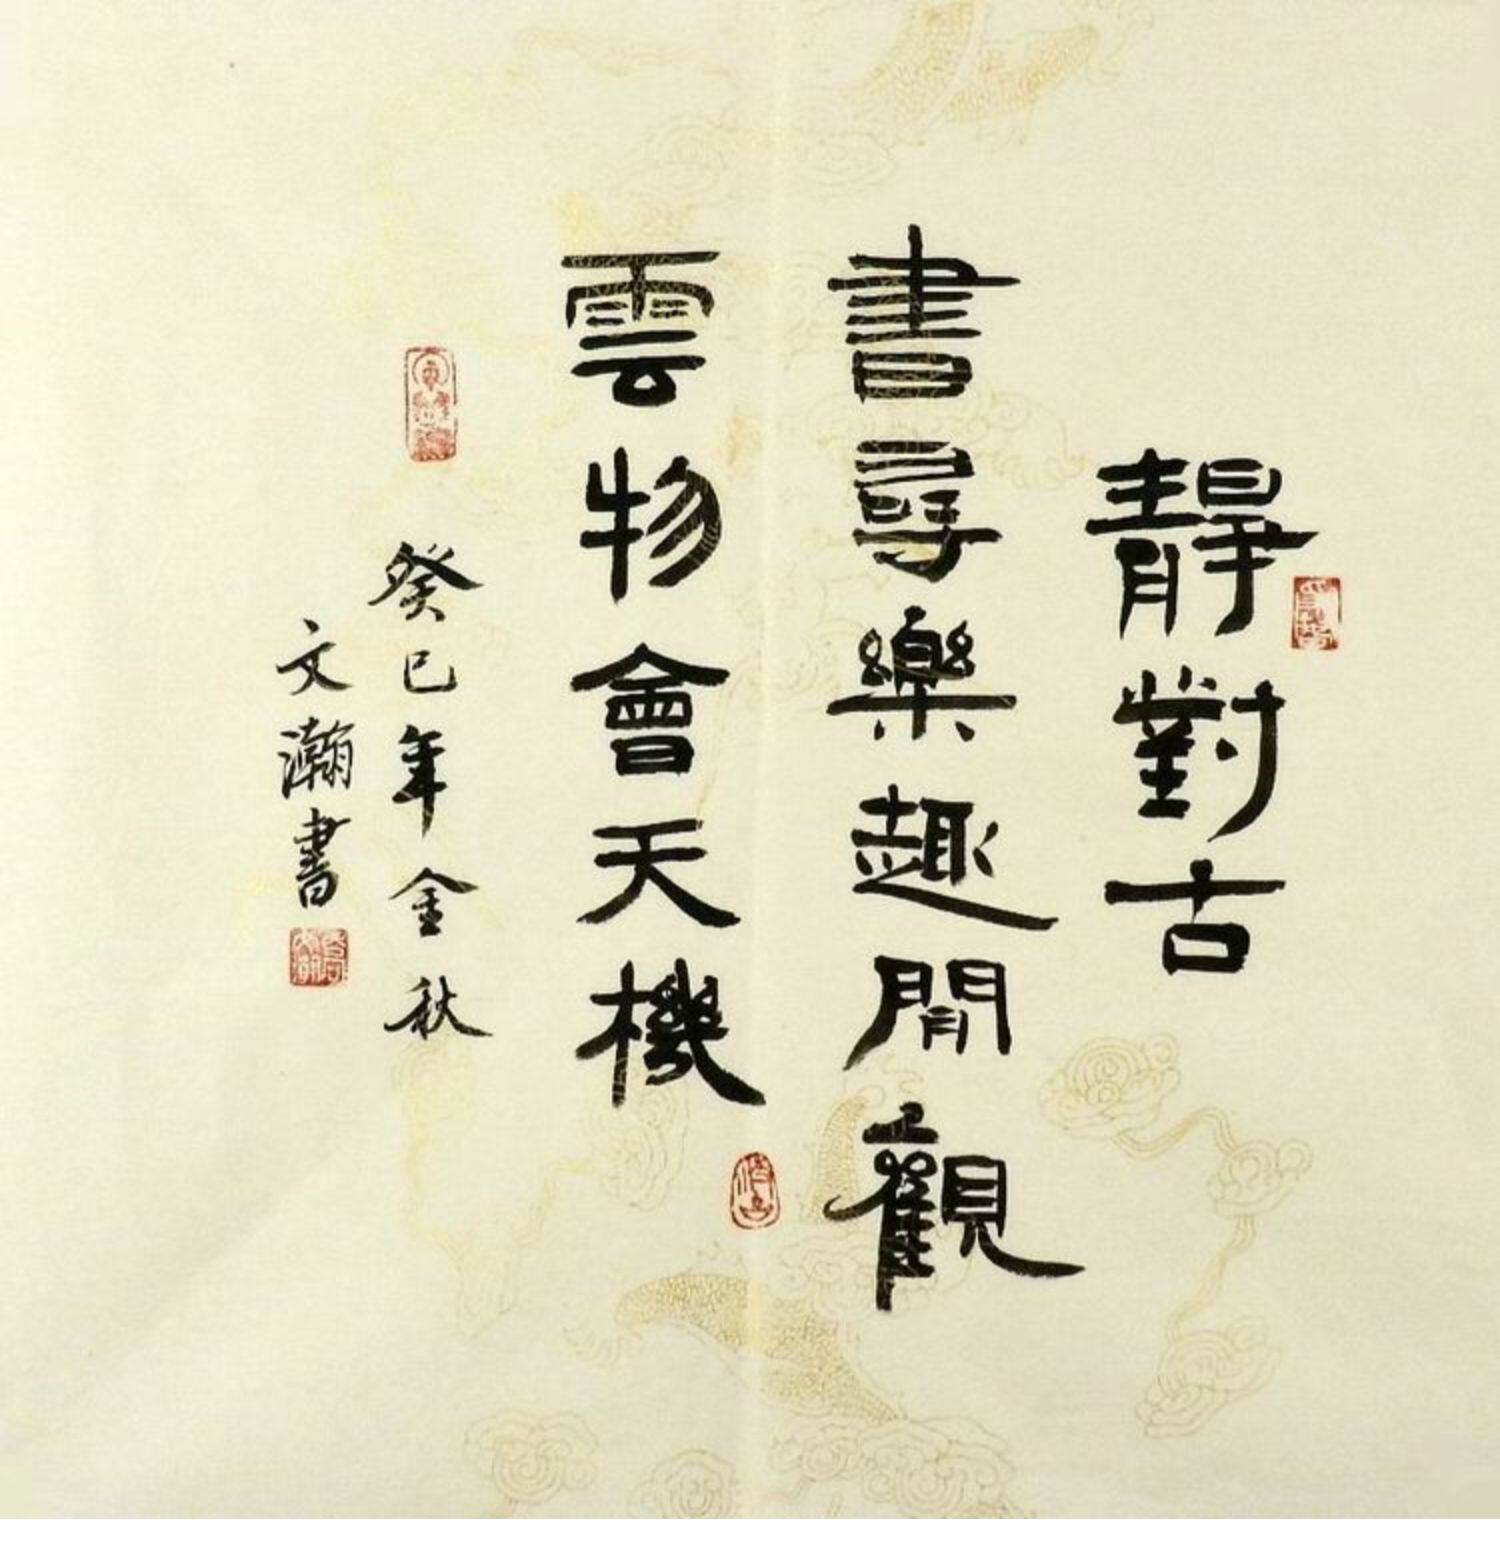 靜對古
書尋樂趣閒觀
雲物會天機
癸巳年金秋
文瀚書